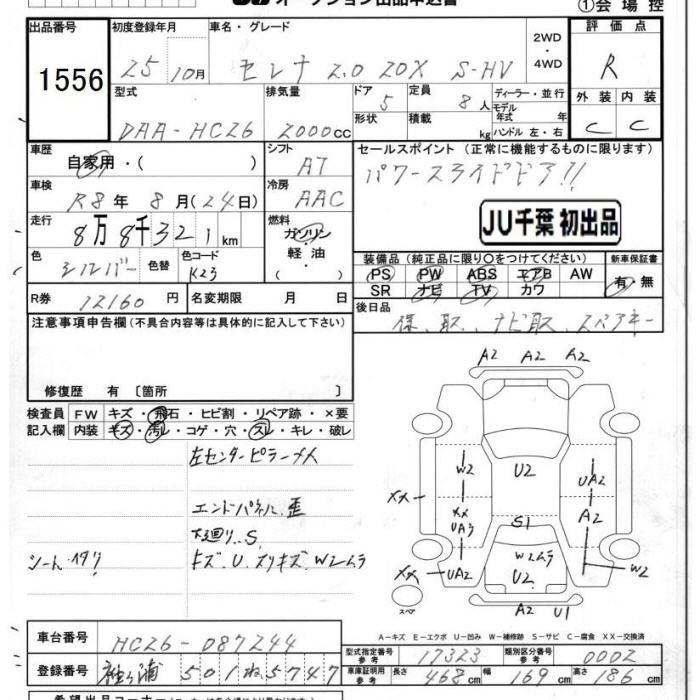 オークション出品申込書
①会場控
出品番号 初度登録年月 車名・グレード 2WD・4WD 評価点
1556 25 10月 セレナ 2.0 20X S-HV R
型式 排気量 ドア 定員 ディーラー・並行 外装 内装
DAA-HC26 2000cc 5 8人 モデル年式 年 C C
形状 積載 kg ハンドル 左・右
車歴 シフト セールスポイント(正常に機能するものに限ります)
自家用・( ) AT パワースライドドア!!
車検 冷房
R8年 8月(24日) AAC
走行 燃料 JU千葉 初出品
8万8千321km ガソリン
軽・油
( )
色 色替 色コード
シルバー K23
装備品(純正品に限り○をつけてください) 新車保証書
PS PW ABS エアB AW 有・無
SR ナビ TV カワ
R券 12160円 名変期限 月 日 後日品
保、取、ナビ取、スペアキー
注意事項申告欄(不具合内容等は具体的に記入して下さい)
修復歴 有〔箇所 〕
検査員 FW キズ・飛石・ヒビ割・リペア跡・×要
記入欄 内装 キズ・汚レ・コゲ・穴・スレ・キレ・破レ
左センターピラーメイ
エンドパネル歪
下廻り.S
シートヘタリ キズ.U.スリキズ.W2ムラ
A2 A2 A2
W2 U2 UA2
XX
XX UA3 S1 A2
W2ムラ
XX UA2 U2 W2
A2 U1
スペア
A-キズ E-エクボ U-凹み W-補修跡 S-サビ C-腐食 XX-交換済
車台番号 HC26-087244 型式指定番号 参考 17323 類別区分番号 参考 0002
登録番号 袖ヶ浦 501 ね 5747 車庫証明用 参考 長さ 468cm 幅 169cm 高さ 186cm